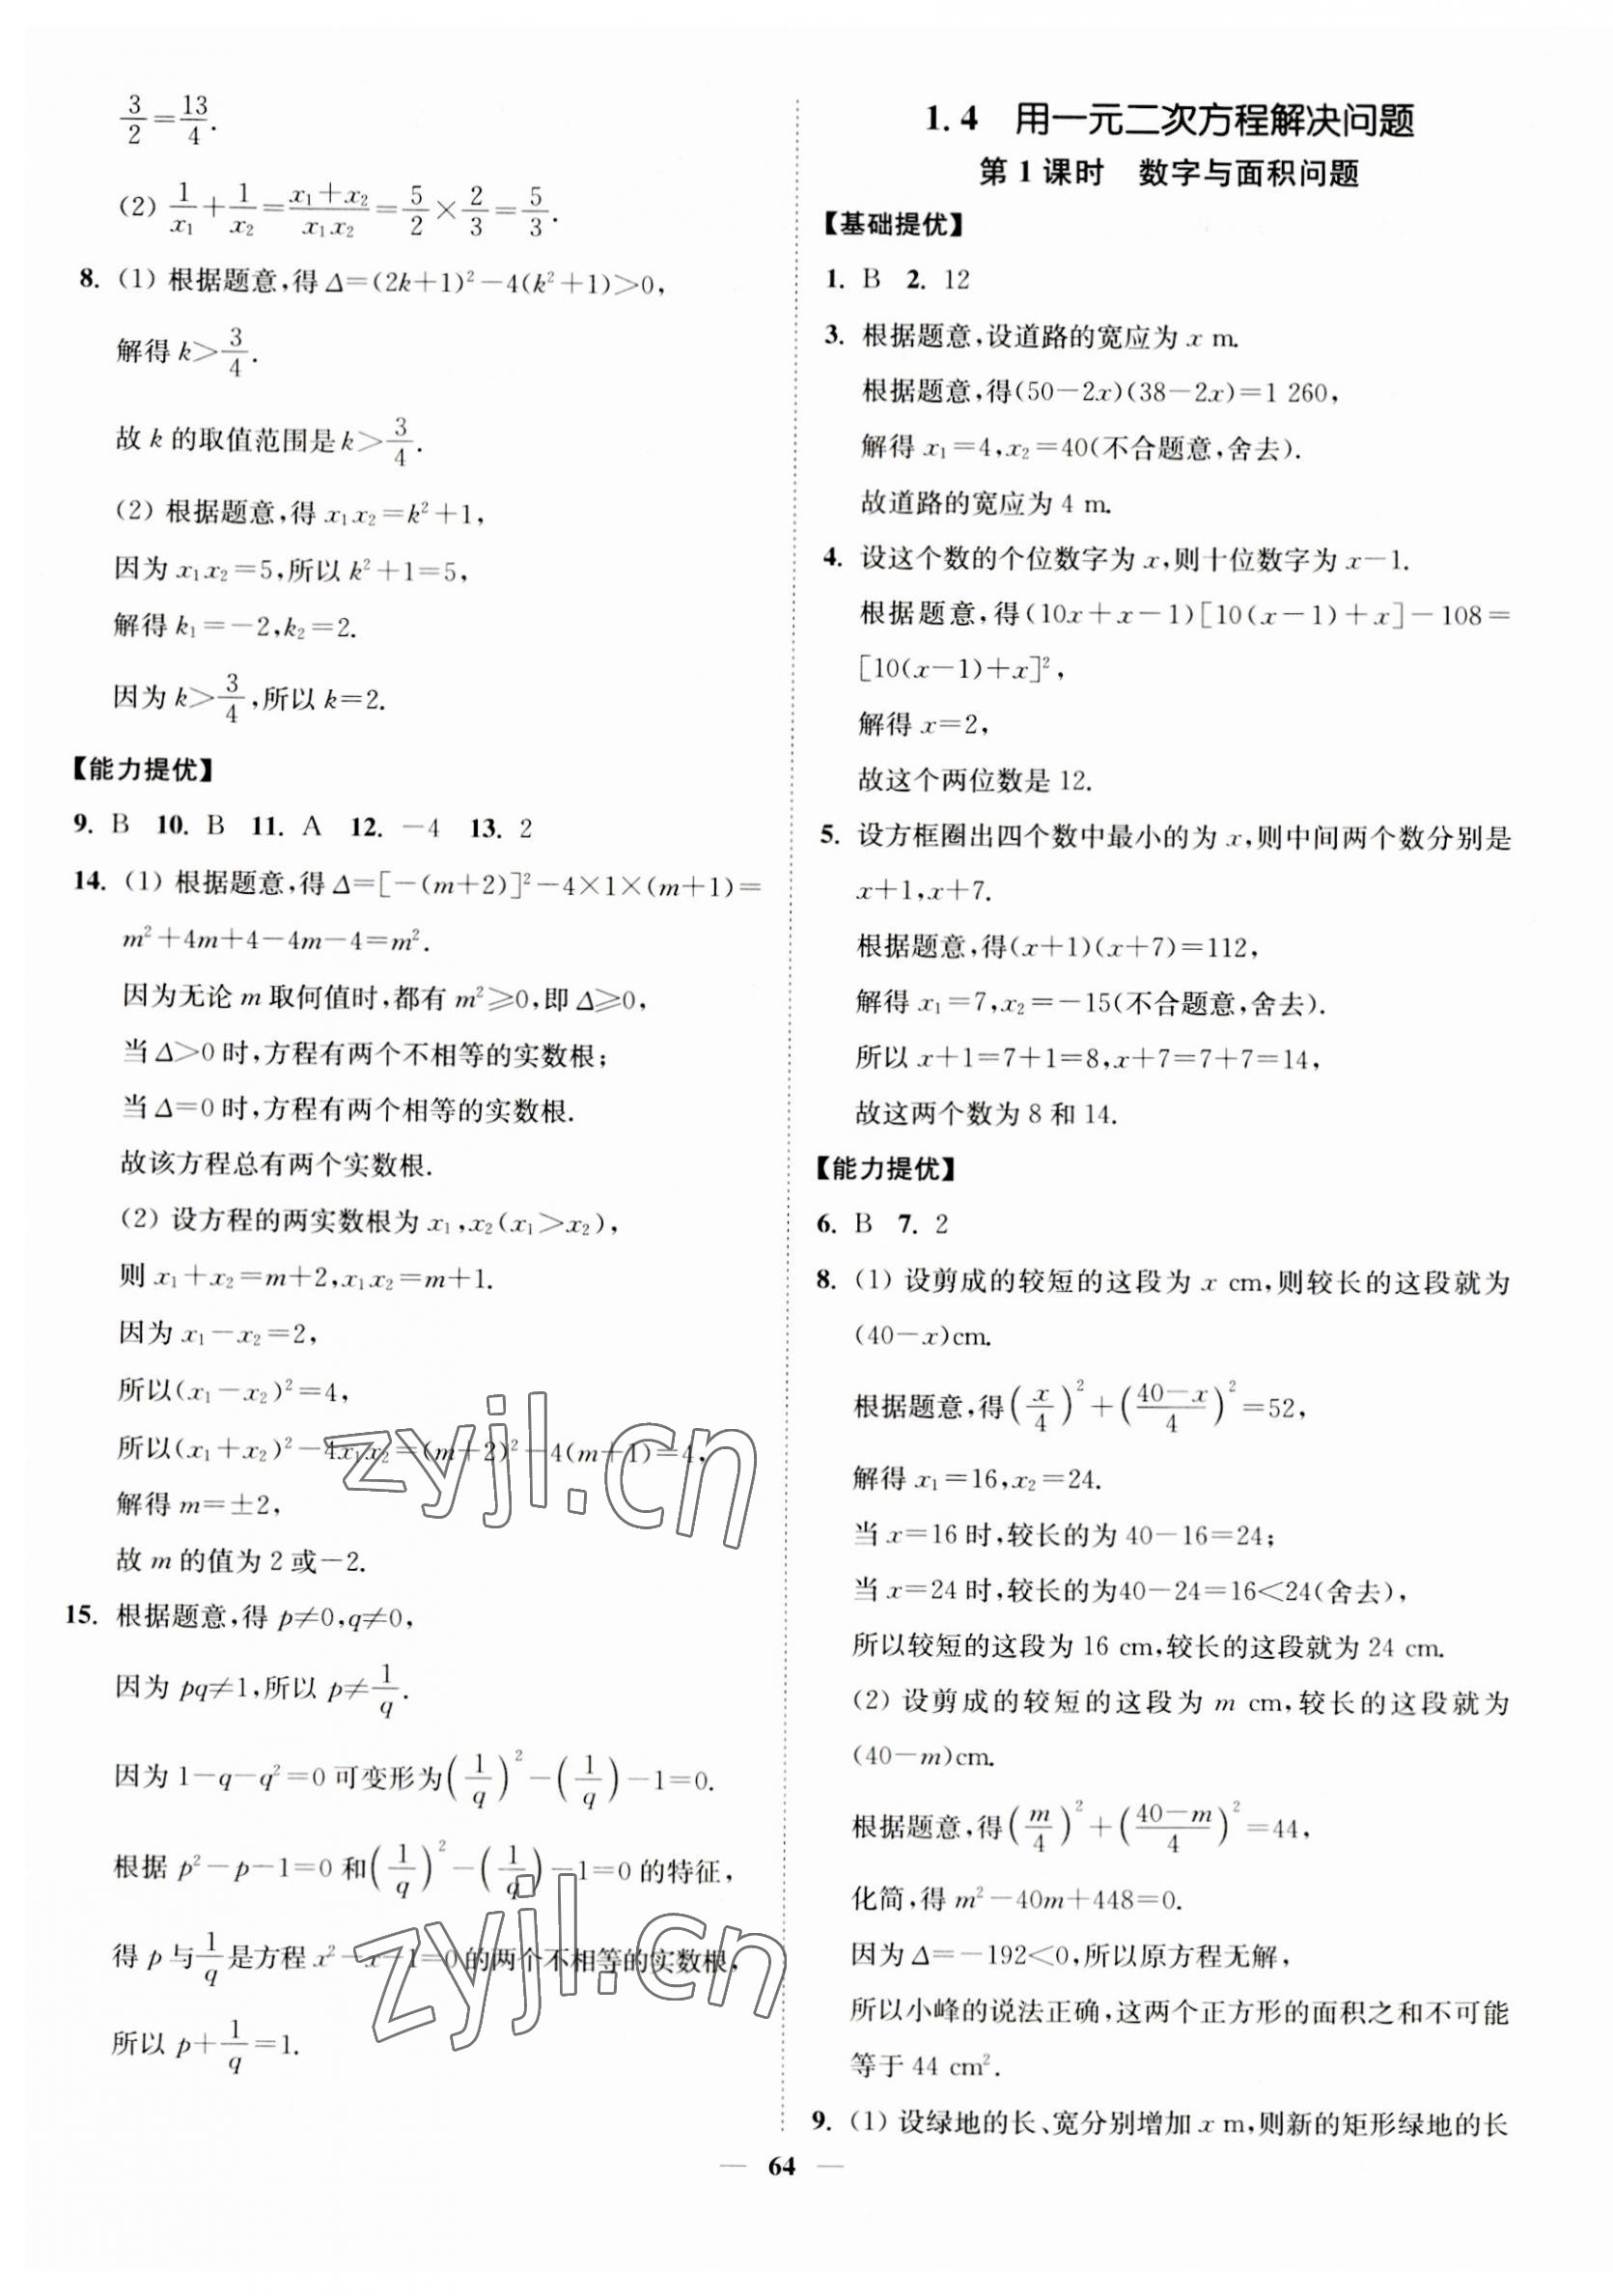 3/2=13/4.
(2) 1/x₁+1/x₂=(x₁+x₂)/(x₁x₂)=5/2×2/3=5/3.
8. (1) 根据题意,得 Δ=(2k+1)²-4(k²+1)>0,
解得 k>3/4.
故 k 的取值范围是 k>3/4.
(2) 根据题意,得 x₁x₂=k²+1,
因为 x₁x₂=5,所以 k²+1=5,
解得 k₁=-2,k₂=2.
因为 k>3/4,所以 k=2.
【能力提优】
9. B 10. B 11. A 12. -4 13. 2
14. (1) 根据题意,得 Δ=[-(m+2)]²-4×1×(m+1)=
m²+4m+4-4m-4=m².
因为无论 m 取何值时,都有 m²≥0,即 Δ≥0,
当 Δ>0 时,方程有两个不相等的实数根;
当 Δ=0 时,方程有两个相等的实数根.
故该方程总有两个实数根.
(2) 设方程的两实数根为 x₁,x₂(x₁>x₂),
则 x₁+x₂=m+2,x₁x₂=m+1.
因为 x₁-x₂=2,
所以(x₁-x₂)²=4,
所以(x₁+x₂)²-4x₁x₂=(m+2)²-4(m+1)=4,
解得 m=±2,
故 m 的值为 2 或-2.
15. 根据题意,得 p≠0,q≠0,
因为 pq≠1,所以 p≠1/q.
因为 1-q-q²=0 可变形为(1/q)²-(1/q)-1=0.
根据 p²-p-1=0 和(1/q)²-(1/q)-1=0 的特征,
得 p 与 1/q 是方程 x²-x-1=0 的两个不相等的实数根,
所以 p+1/q=1.
1.4 用一元二次方程解决问题
第 1 课时 数字与面积问题
【基础提优】
1. B 2. 12
3. 根据题意,设道路的宽应为 x m.
根据题意,得(50-2x)(38-2x)=1 260,
解得 x₁=4,x₂=40(不合题意,舍去).
故道路的宽应为 4 m.
4. 设这个数的个位数字为 x,则十位数字为 x-1.
根据题意,得(10x+x-1)[10(x-1)+x]-108=
[10(x-1)+x]²,
解得 x=2,
故这个两位数是 12.
5. 设方框圈出四个数中最小的为 x,则中间两个数分别是
x+1,x+7.
根据题意,得(x+1)(x+7)=112,
解得 x₁=7,x₂=-15(不合题意,舍去).
所以 x+1=7+1=8,x+7=7+7=14,
故这两个数为 8 和 14.
【能力提优】
6. B 7. 2
8. (1) 设剪成的较短的这段为 x cm,则较长的这段就为
(40-x)cm.
根据题意,得(x/4)²+((40-x)/4)²=52,
解得 x₁=16,x₂=24.
当 x=16 时,较长的为 40-16=24;
当 x=24 时,较长的为40-24=16<24(舍去),
所以较短的这段为 16 cm,较长的这段就为 24 cm.
(2) 设剪成的较短的这段为 m cm,较长的这段就为
(40-m)cm.
根据题意,得(m/4)²+((40-m)/4)²=44,
化简,得 m²-40m+448=0.
因为 Δ=-192<0,所以原方程无解,
所以小峰的说法正确,这两个正方形的面积之和不可能
等于 44 cm².
9. (1) 设绿地的长、宽分别增加 x m,则新的矩形绿地的长
— 64 —
zyjl.cn
zyjl.cn